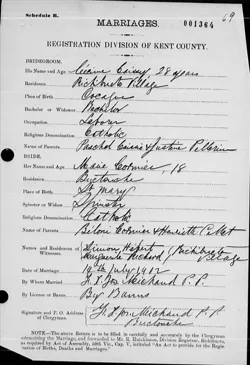 Schedule B.
69
MARRIAGES.
001364
REGISTRATION DIVISION OF KENT COUNTY.
BRIDEGROOM.
His Name and Age 28 years
Residence Richibucto Village
Place of Birth Cocagne
Bachelor or Widower Bachelor
Occupation Labour
Religious Denomination Catholic
Name of Parents Paschal &
BRIDE.
Her Name and Age Marie Cormier, 18
Residence Buctouche
Place of Birth St Mary
Spinster or Widow Spinster
Religious Denomination Catholic
Name of Parents Cormier & Henriette
Names and Residences of Witnesses Simon Hébert
Marguerite Richard } Richibucto Village
Date of Marriage July 1912
By Whom Married F. X. Jos. Michaud P.P.
By License or Banns By Banns
Signature and P. O. Address of Clergyman. F. X. Jos. Michaud P.P.
Buctouche
NOTE.—The above Return is to be filled in carefully and accurately by the Clergyman
solemnizing the Marriage, and forwarded to Mr. R. Hutchinson, Division Registrar, Richibucto,
as required by Act of Assembly, 50th Vic., Cap. V, intituled "An Act to provide for the Regis-
tration of Births, Deaths and Marriages."